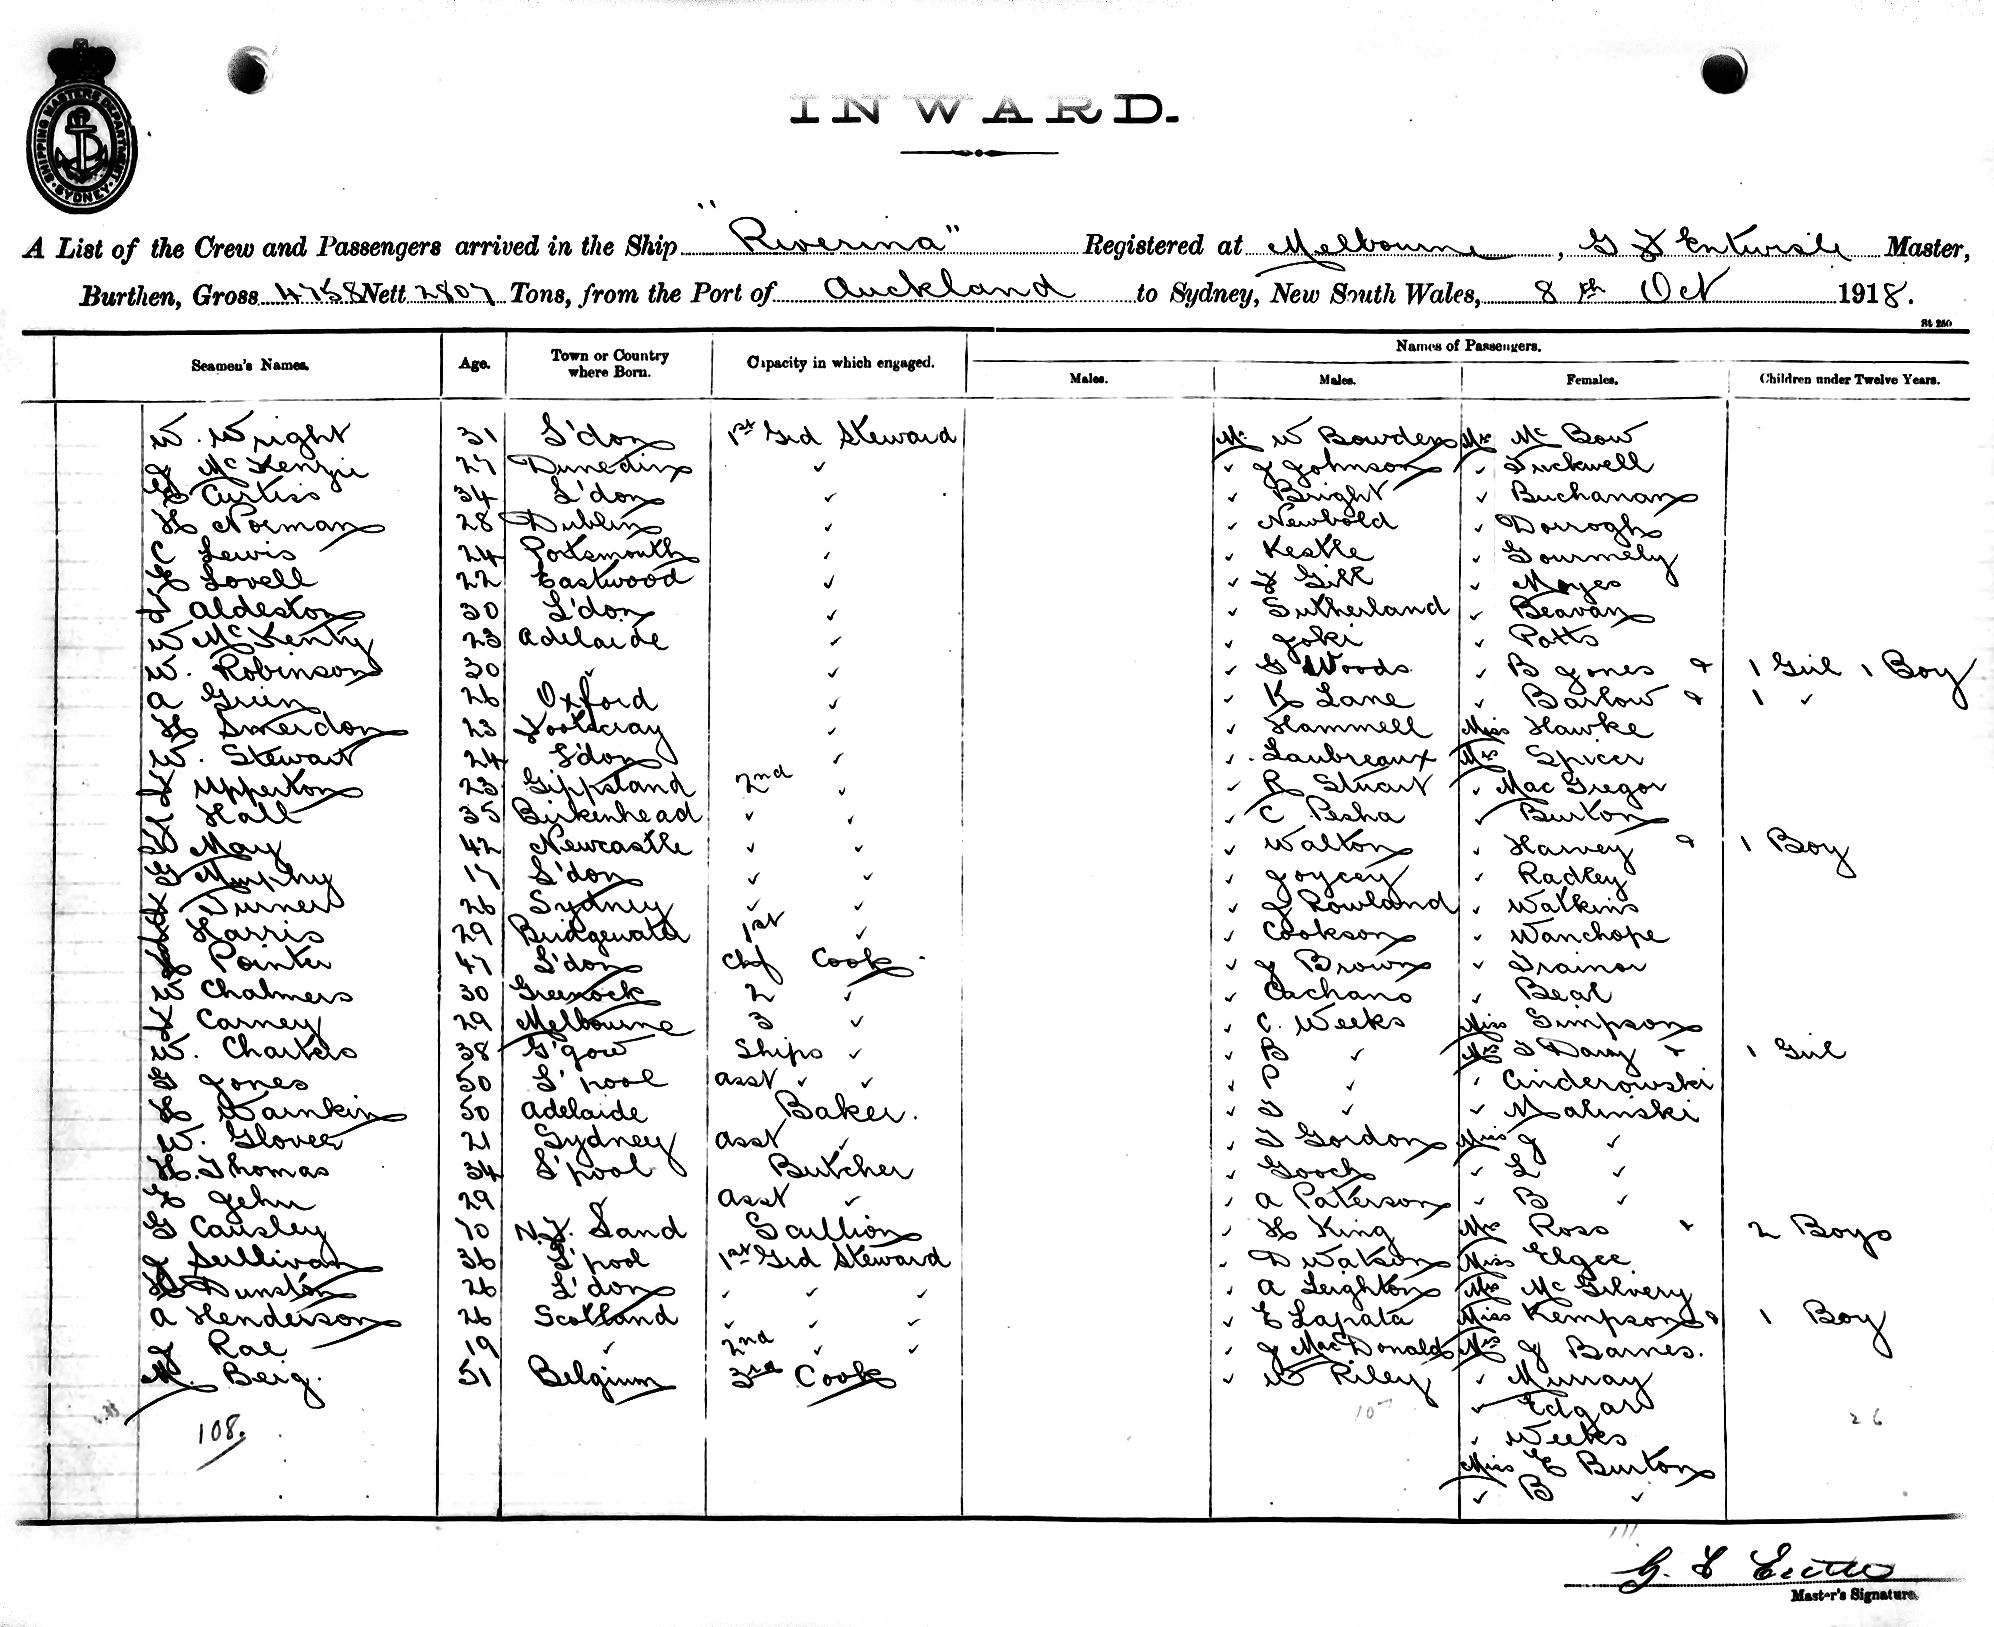 SHIPPING MASTERS DEPARTMENT SYDNEY
INWARD.
A List of the Crew and Passengers arrived in the Ship "Riverina" Registered at Melbourne, G F Entwisle Master,
Burthen, Gross 4758 Nett 2807 Tons, from the Port of Auckland to Sydney, New South Wales, 8th Oct 1918.
St 250
Names of Passengers.
Seamen's Names. Age. Town or Country where Born. Capacity in which engaged. Males. Males. Females. Children under Twelve Years.
W. Wright 31 L'don 1st Grd Steward Mr W Bowden Mrs McBow
J McKenzie 27 Dunedin ✓ ✓ J Johnson ✓ Tuckwell
Curtiss 34 L'don ✓ ✓ Bright ✓ Buchanan
H Norman 28 Dublin ✓ ✓ Newbold ✓ Dorrogh
C Lewis 24 Portsmouth ✓ ✓ Kestle ✓ Gourmely
Lovell 22 Eastwood ✓ ✓ F Gill ✓ Moyes
Aldeston 30 L'don ✓ ✓ Sutherland ✓ Beavan
W McKenty 23 Adelaide ✓ ✓ Joki ✓ Potts
W. Robinson 30 ✓ ✓ ✓ G Woods ✓ B Jones & 1 Girl 1 Boy
A Grein 26 Oxford ✓ ✓ K Lane ✓ Barlow & 1 ✓
H Smerdon 23 Footscray ✓ ✓ Hammell Miss Hawke
W. Stewart 24 L'don ✓ Laubreaux Mrs Spicer
Upperton 23 Gippsland 2nd ✓ ✓ R Stuart ✓ MacGregor
Hall 35 Birkenhead ✓ ✓ ✓ C Pesha ✓ Burton
May 42 Newcastle ✓ ✓ ✓ Walton ✓ Harvey & 1 Boy
G Murphy 17 L'don ✓ ✓ ✓ Joycey ✓ Radley
Turner 26 Sydney ✓ ✓ ✓ J Rowland ✓ Watkins
Harris 29 Bridgewater 1st ✓ ✓ Cookson ✓ Wanchope
Pointer 47 L'don Chf Cook ✓ J Brown ✓ Trainor
W Chalmers 30 Greenock 2 ✓ ✓ Cachano ✓ Beal
Carney 29 Melbourne 3 ✓ ✓ C. Weeks Miss Simpson
W. Charters 38 G'gow Ships ✓ ✓ B ✓ Mrs Davy & 1 Girl
G Jones 50 L'pool Asst ✓ ✓ ✓ P ✓ ✓ Cinderowski
H Wainkin 50 Adelaide Baker. ✓ ✓ ✓ Malinski
W. Glover 21 Sydney Asst ✓ ✓ Gordon Miss J ✓
H. Thomas 34 L'pool Butcher ✓ Gooch ✓ L ✓
Jehu 29 ✓ Asst ✓ ✓ A Paterson ✓ B ✓
G Causley 70 N.Z. Land Scullion ✓ H King Mrs Ross & 2 Boys
J Sullivan 36 L'pool 1st Grd Steward D Watson Miss Elgee
Dunston 26 L'don ✓ ✓ ✓ ✓ A Leighton Mrs McGilvery
A Henderson 26 Scotland ✓ ✓ ✓ ✓ E Lapata Miss Kempson & 1 Boy
J Rae 19 ✓ 2nd ✓ ✓ ✓ J MacDonald Mrs J Barnes.
M. Berg. 51 Belgium 3rd Cook ✓ W Riley ✓ Murray
✓ Edgar
108. 107 26
✓ Weeks
Miss E Burton
✓ B ✓
111
G. F. Entwisle
Master's Signature.